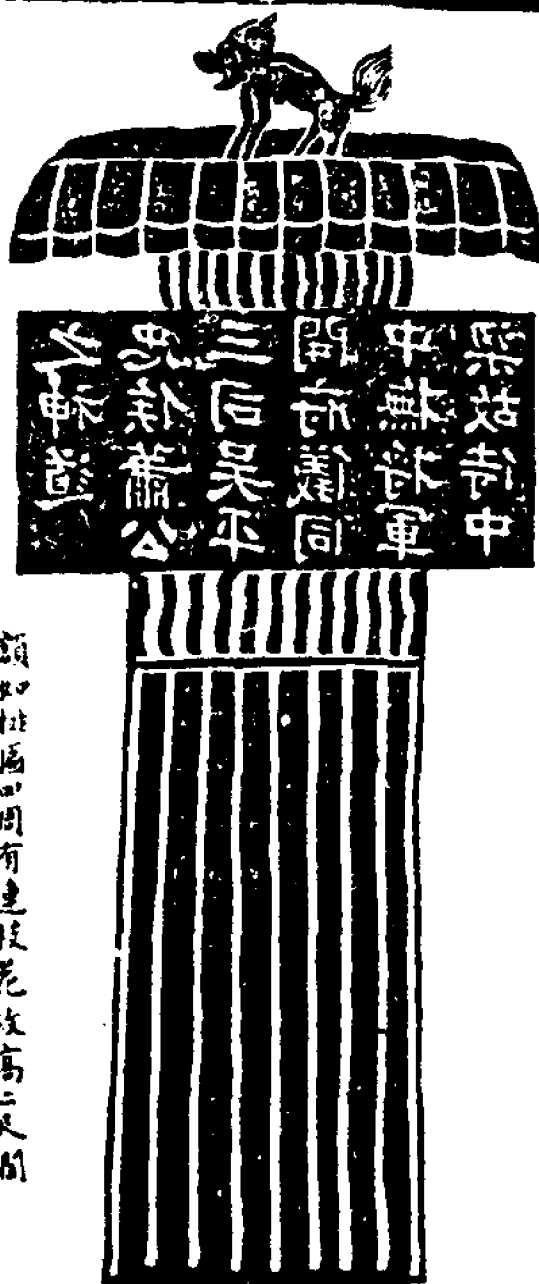 梁故侍中
中撫將軍
開府儀同
三司吳平
忠侯蕭公
之神道
四周有連枝花紋高二尺闊